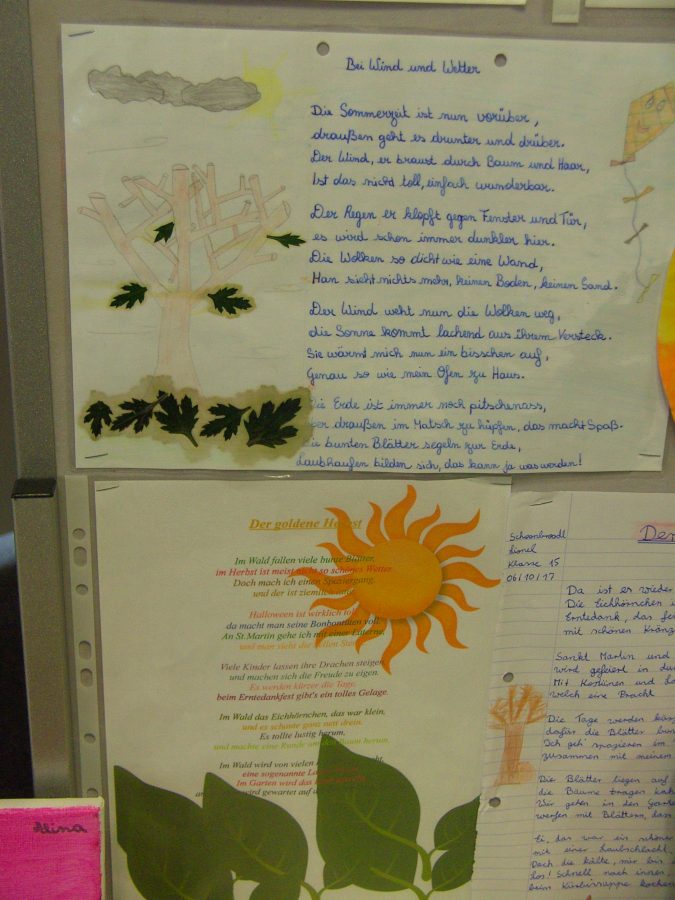 Bei Wind und Wetter
Die Sommerzeit ist nun vorüber,
draußen geht es drunter und drüber.
Der Wind, er braust durch Baum und Haar,
Ist das nicht toll, einfach wunderbar.
Der Regen er klopft gegen Fenster und Tür,
es wird schon immer dunkler hier.
Die Wolken so dicht wie eine Wand,
Man sieht nichts mehr, keinen Boden, keinen Sand.
Der Wind weht nun die Wolken weg,
die Sonne kommt lachend aus ihrem Versteck.
Sie wärmt mich nun ein bisschen auf,
Genau so wie mein Ofen zu Haus.
Die Erde ist immer noch pitschenass,
draußen im Matsch zu hüpfen, das macht Spaß.
bunten Blätter segeln zur Erde,
Laubhaufen bilden sich, das kann ja was werden!
Der goldene Herbst
Im Wald fallen viele bunte Blätter,
im Herbst ist meist nicht so schönes Wetter.
Doch mach ich einen Spaziergang,
und der ist ziemlich
Halloween ist wirklich toll
da macht man seine Bonbontüten voll.
An St.Martin gehe ich mit einer Laterne,
und man sieht die hellen
Viele Kinder lassen ihre Drachen steigen
und machen sich die Freude zu eigen.
Es werden kürzer die Tage,
beim Erntedankfest gibt's ein tolles Gelage.
Im Wald das Eichhörnchen, das war klein,
und es schaute ganz nett drein.
Es tollte lustig herum,
und machte eine Runde um den Baum herum.
Im Wald wird von vielen
eine sogenannte
Im Garten wird das
wird gewartet auf
Alina
Schoonbroodt
Lionel
Klasse 15
06/10/17
Der
Da ist er wieder
Die Eichhörnchen
Erntedank, das
mit schönen
Sankt Martin und
wird gefeiert in
Mit Kostümen und
welch eine Pracht
Die Tage werden
dafür die Blätter
Ich geh' spazieren im
zusammen mit meinem
Die Blätter liegen auf
die Bäume tragen
Wir gehen in den
werfen mit Blättern, das
Ei, das war ein schöner
mit einer Laubschlacht
Doch die kälte, mir
los! Schnell nach innen,
beim Kürbissuppe kochen